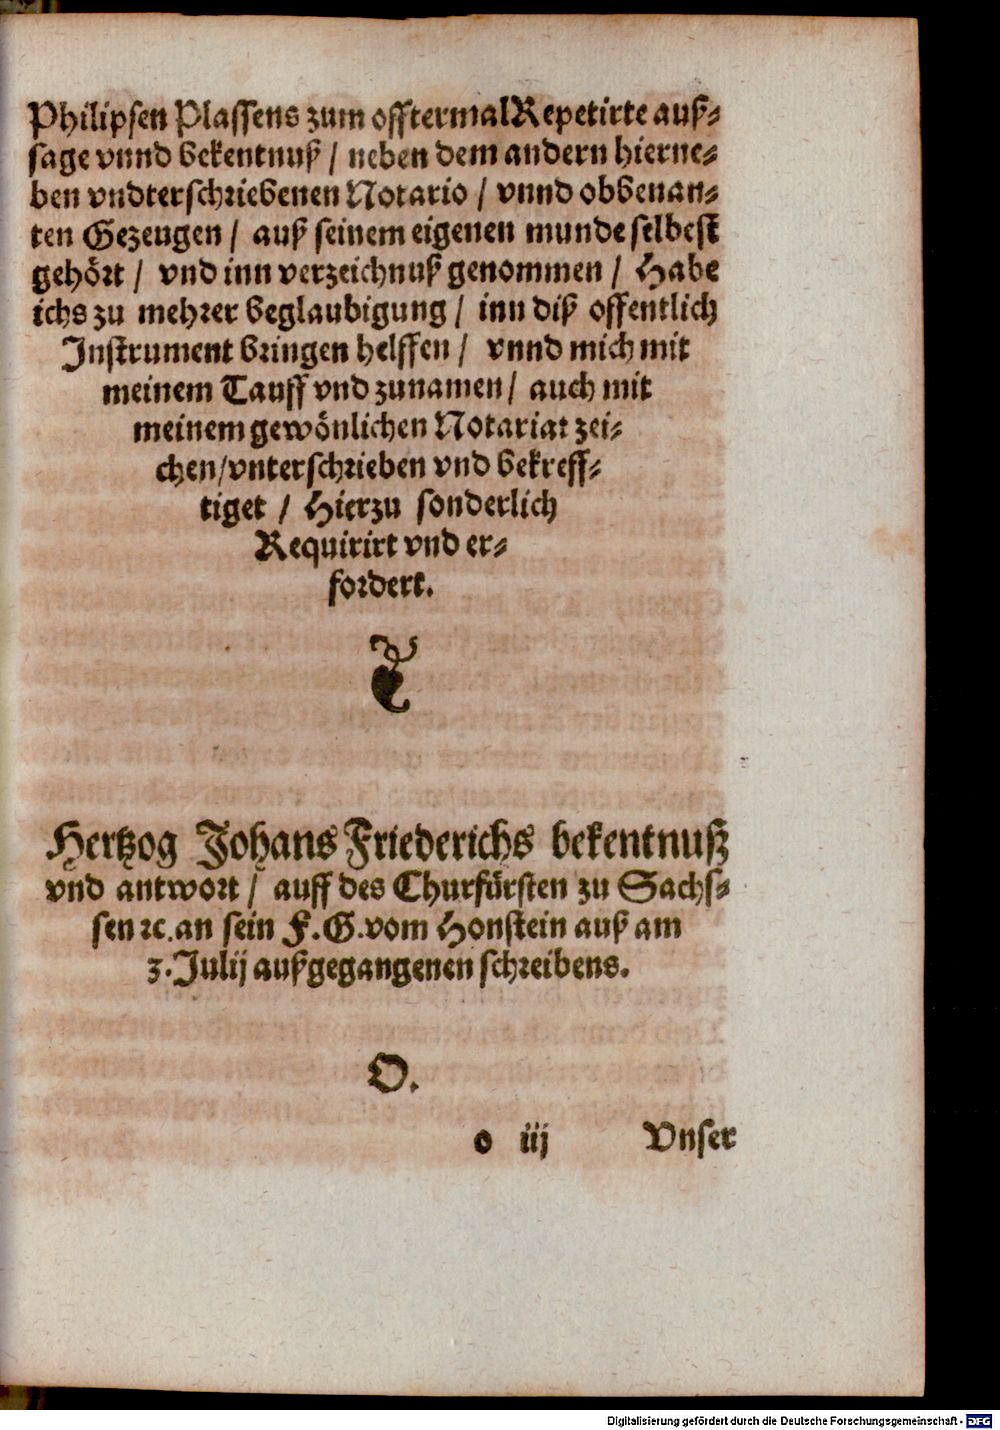 Philipsen Plassens zum offtermal Repetirte auß⸗
sage vnnd bekentnuß / neben dem andern hierne⸗
ben vndterschriebenen Notario / vnnd obbenan⸗
ten Gezeugen / auß seinem eigenen munde selbest
gehört / vnd inn verzeichnuß genommen / Habe
ichs zu mehrer beglaubigung / inn diß offentlich
Instrument bringen helffen / vnnd mich mit
meinem Tauff vnd zunamen / auch mit
meinem gewönlichen Notariat zei⸗
chen / vnterschrieben vnd bekreff⸗
tiget / Hierzu sonderlich
Requirirt vnd er⸗
fordert.
Hertzog Johans Friederichs bekentnuß
vnd antwort / auff des Churfürsten zu Sachs⸗
sen ꝛc. an sein F. G. vom Honstein auß am
3. Julij außgegangenen schreibens.
O.
o iij Vnser
Digitalisierung gefördert durch die Deutsche Forschungsgemeinschaft - DFG